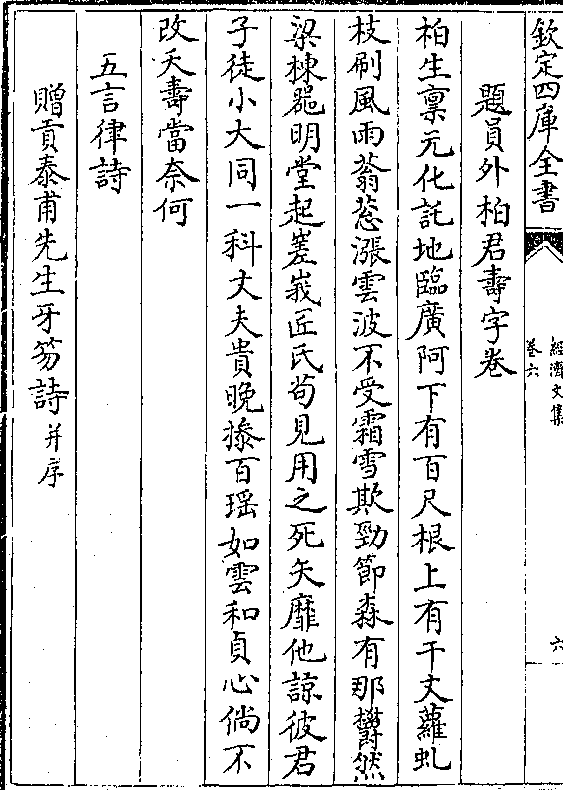 欽定四庫全書
經濟文集
卷六
六
題員外柏君壽字卷
柏生稟元化託地臨廣阿下有百尺根上有千丈蘿虬
枝刷風雨蓊蔥漲雲波不受霜雪欺勁節森有那欝然
梁棟器明堂起嵳峩匠氏苟見用之死矢靡他諒彼君
子徒小大同一科丈夫貴晚摻百瑶如雲和貞心倘不
改夭壽當奈何
五言律詩
贈貢泰甫先生牙笏詩并序